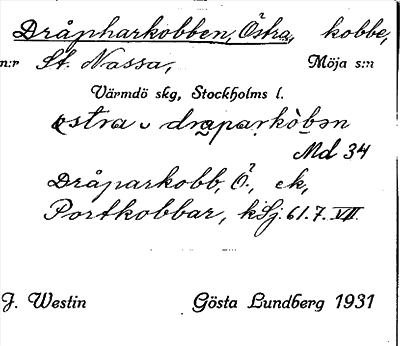 Dråpharkobben, Östra, kobbe,
n:r St. Nassa, Möja s:n
Värmdö skg, Stockholms l.
Md 34
Dråparkobb, Ö., ek,
Portkobbar, kSj. 61.7. VII.
J. Westin Gösta Lundberg 1931